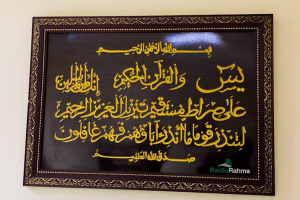 بسم الله الرحمن الرحيم
يس والقرآن الحكيم إنك لمن المرسلين
على صراط مستقيم تنزيل العزيز الرحيم
لتنذر قوما ما أنذر آباؤهم فهم غافلون
صدق الله العظيم
RadioRahma